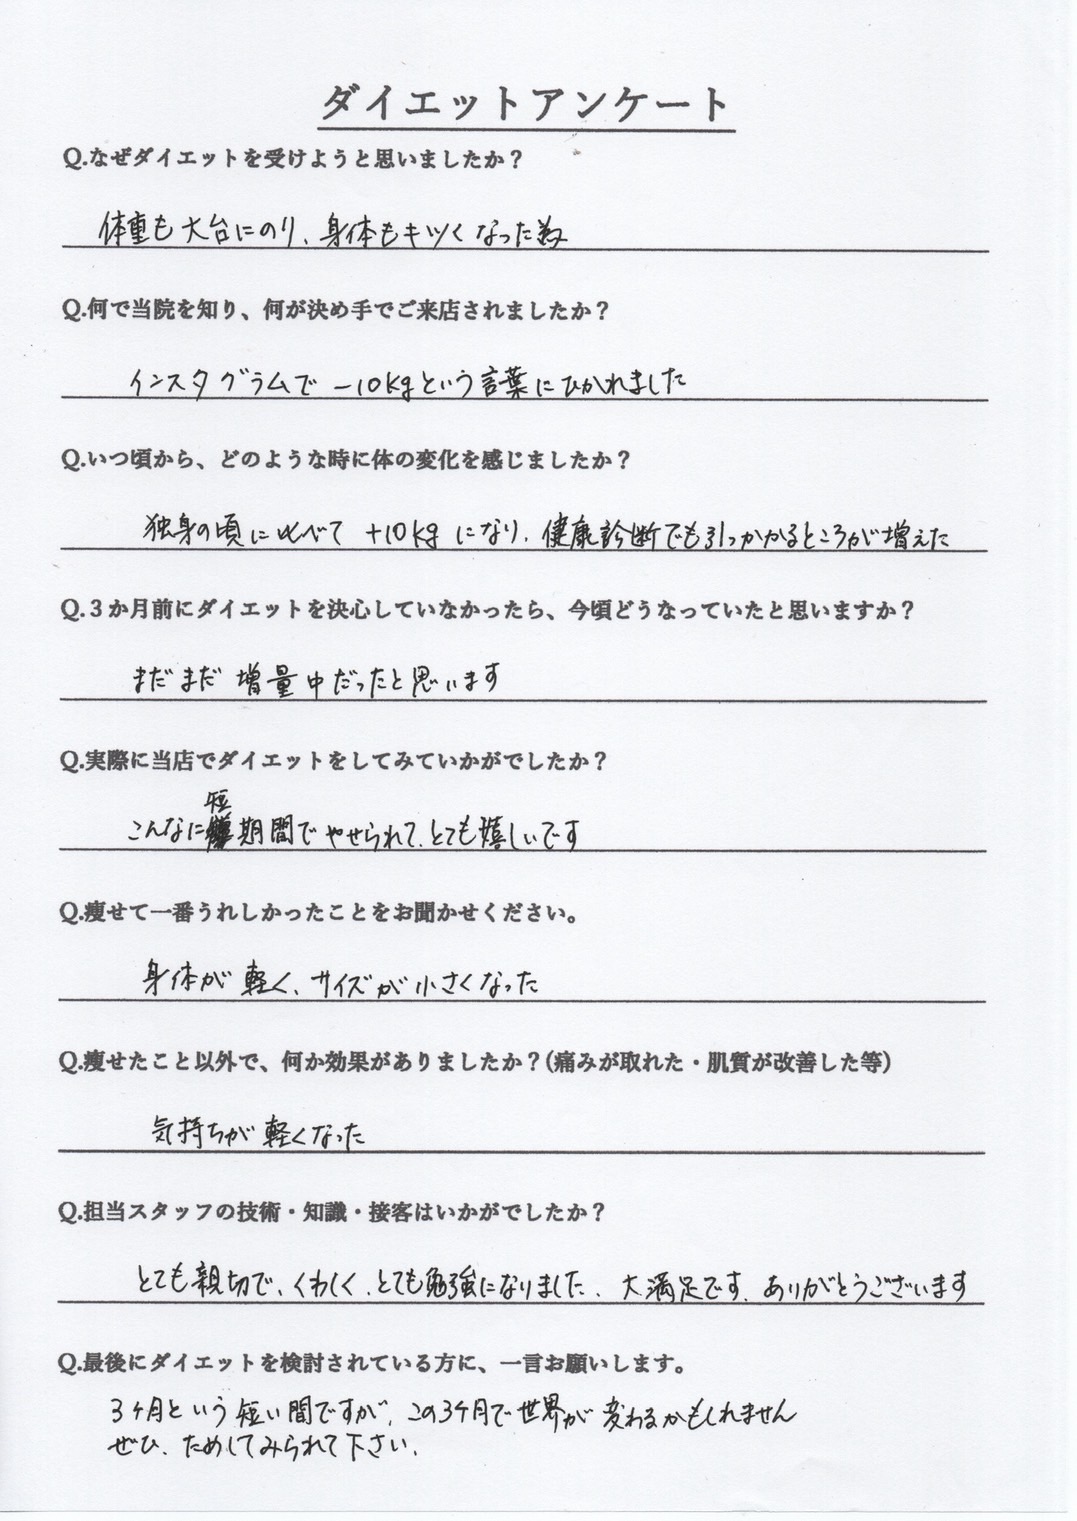 ダイエットアンケート
Q.なぜダイエットを受けようと思いましたか？
体重も大台にのり、身体もキツくなった為
Q.何で当院を知り、何が決め手でご来店されましたか？
インスタグラムで −10kgという言葉にひかれました
Q.いつ頃から、どのような時に体の変化を感じましたか？
独身の頃に比べて +10kgになり、健康診断でも引っかかるところが増えた
Q.３か月前にダイエットを決心していなかったら、今頃どうなっていたと思いますか？
まだまだ 増量中だったと思います
Q.実際に当店でダイエットをしてみていかがでしたか？
こんなに短期間でやせられて、とても嬉しいです
Q.痩せて一番うれしかったことをお聞かせください。
身体が軽く、サイズが小さくなった
Q.痩せたこと以外で、何か効果がありましたか？(痛みが取れた・肌質が改善した等)
気持ちが軽くなった
Q.担当スタッフの技術・知識・接客はいかがでしたか？
とても親切で、くわしく、とても勉強になりました、大満足です、ありがとうございます
Q.最後にダイエットを検討されている方に、一言お願いします。
3ヶ月という短い間ですが、この3ヶ月で世界が変わるかもしれません
ぜひ、ためしてみられて下さい、